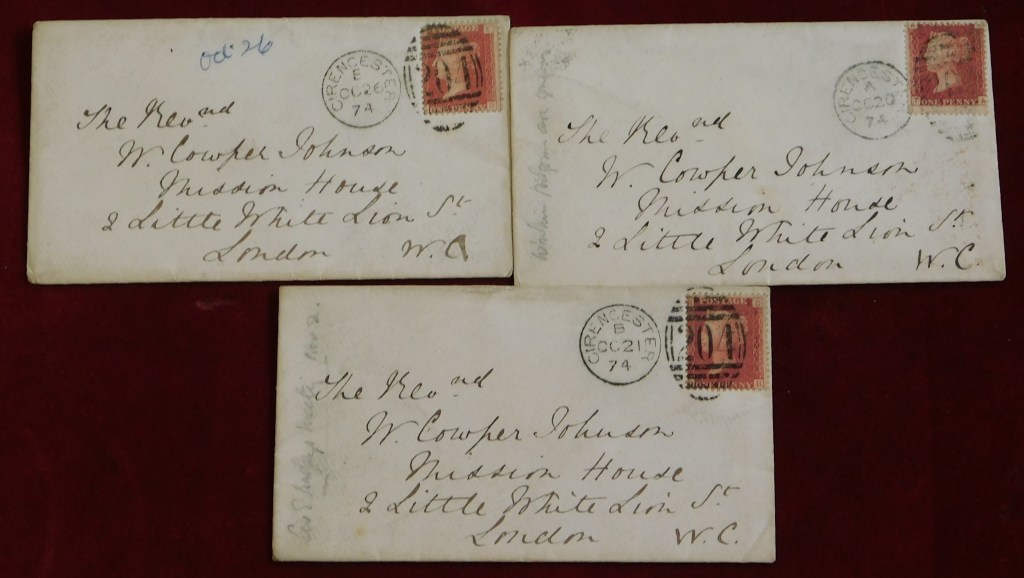 Oct 26
CIRENCESTER
B
OC 26
74
204
The Revnd
W. Cowper Johnson
Mission House
2 Little White Lion St
London W.C
CIRENCESTER
A
OC 20
74
ONE PENNY
The Revnd
W. Cowper Johnson
Mission House
2 Little White Lion St
London W.C.
CIRENCESTER
B
OC 21
74
POSTAGE
204
The Revnd
W. Cowper Johnson
Mission House
2 Little White Lion St
London W.C.